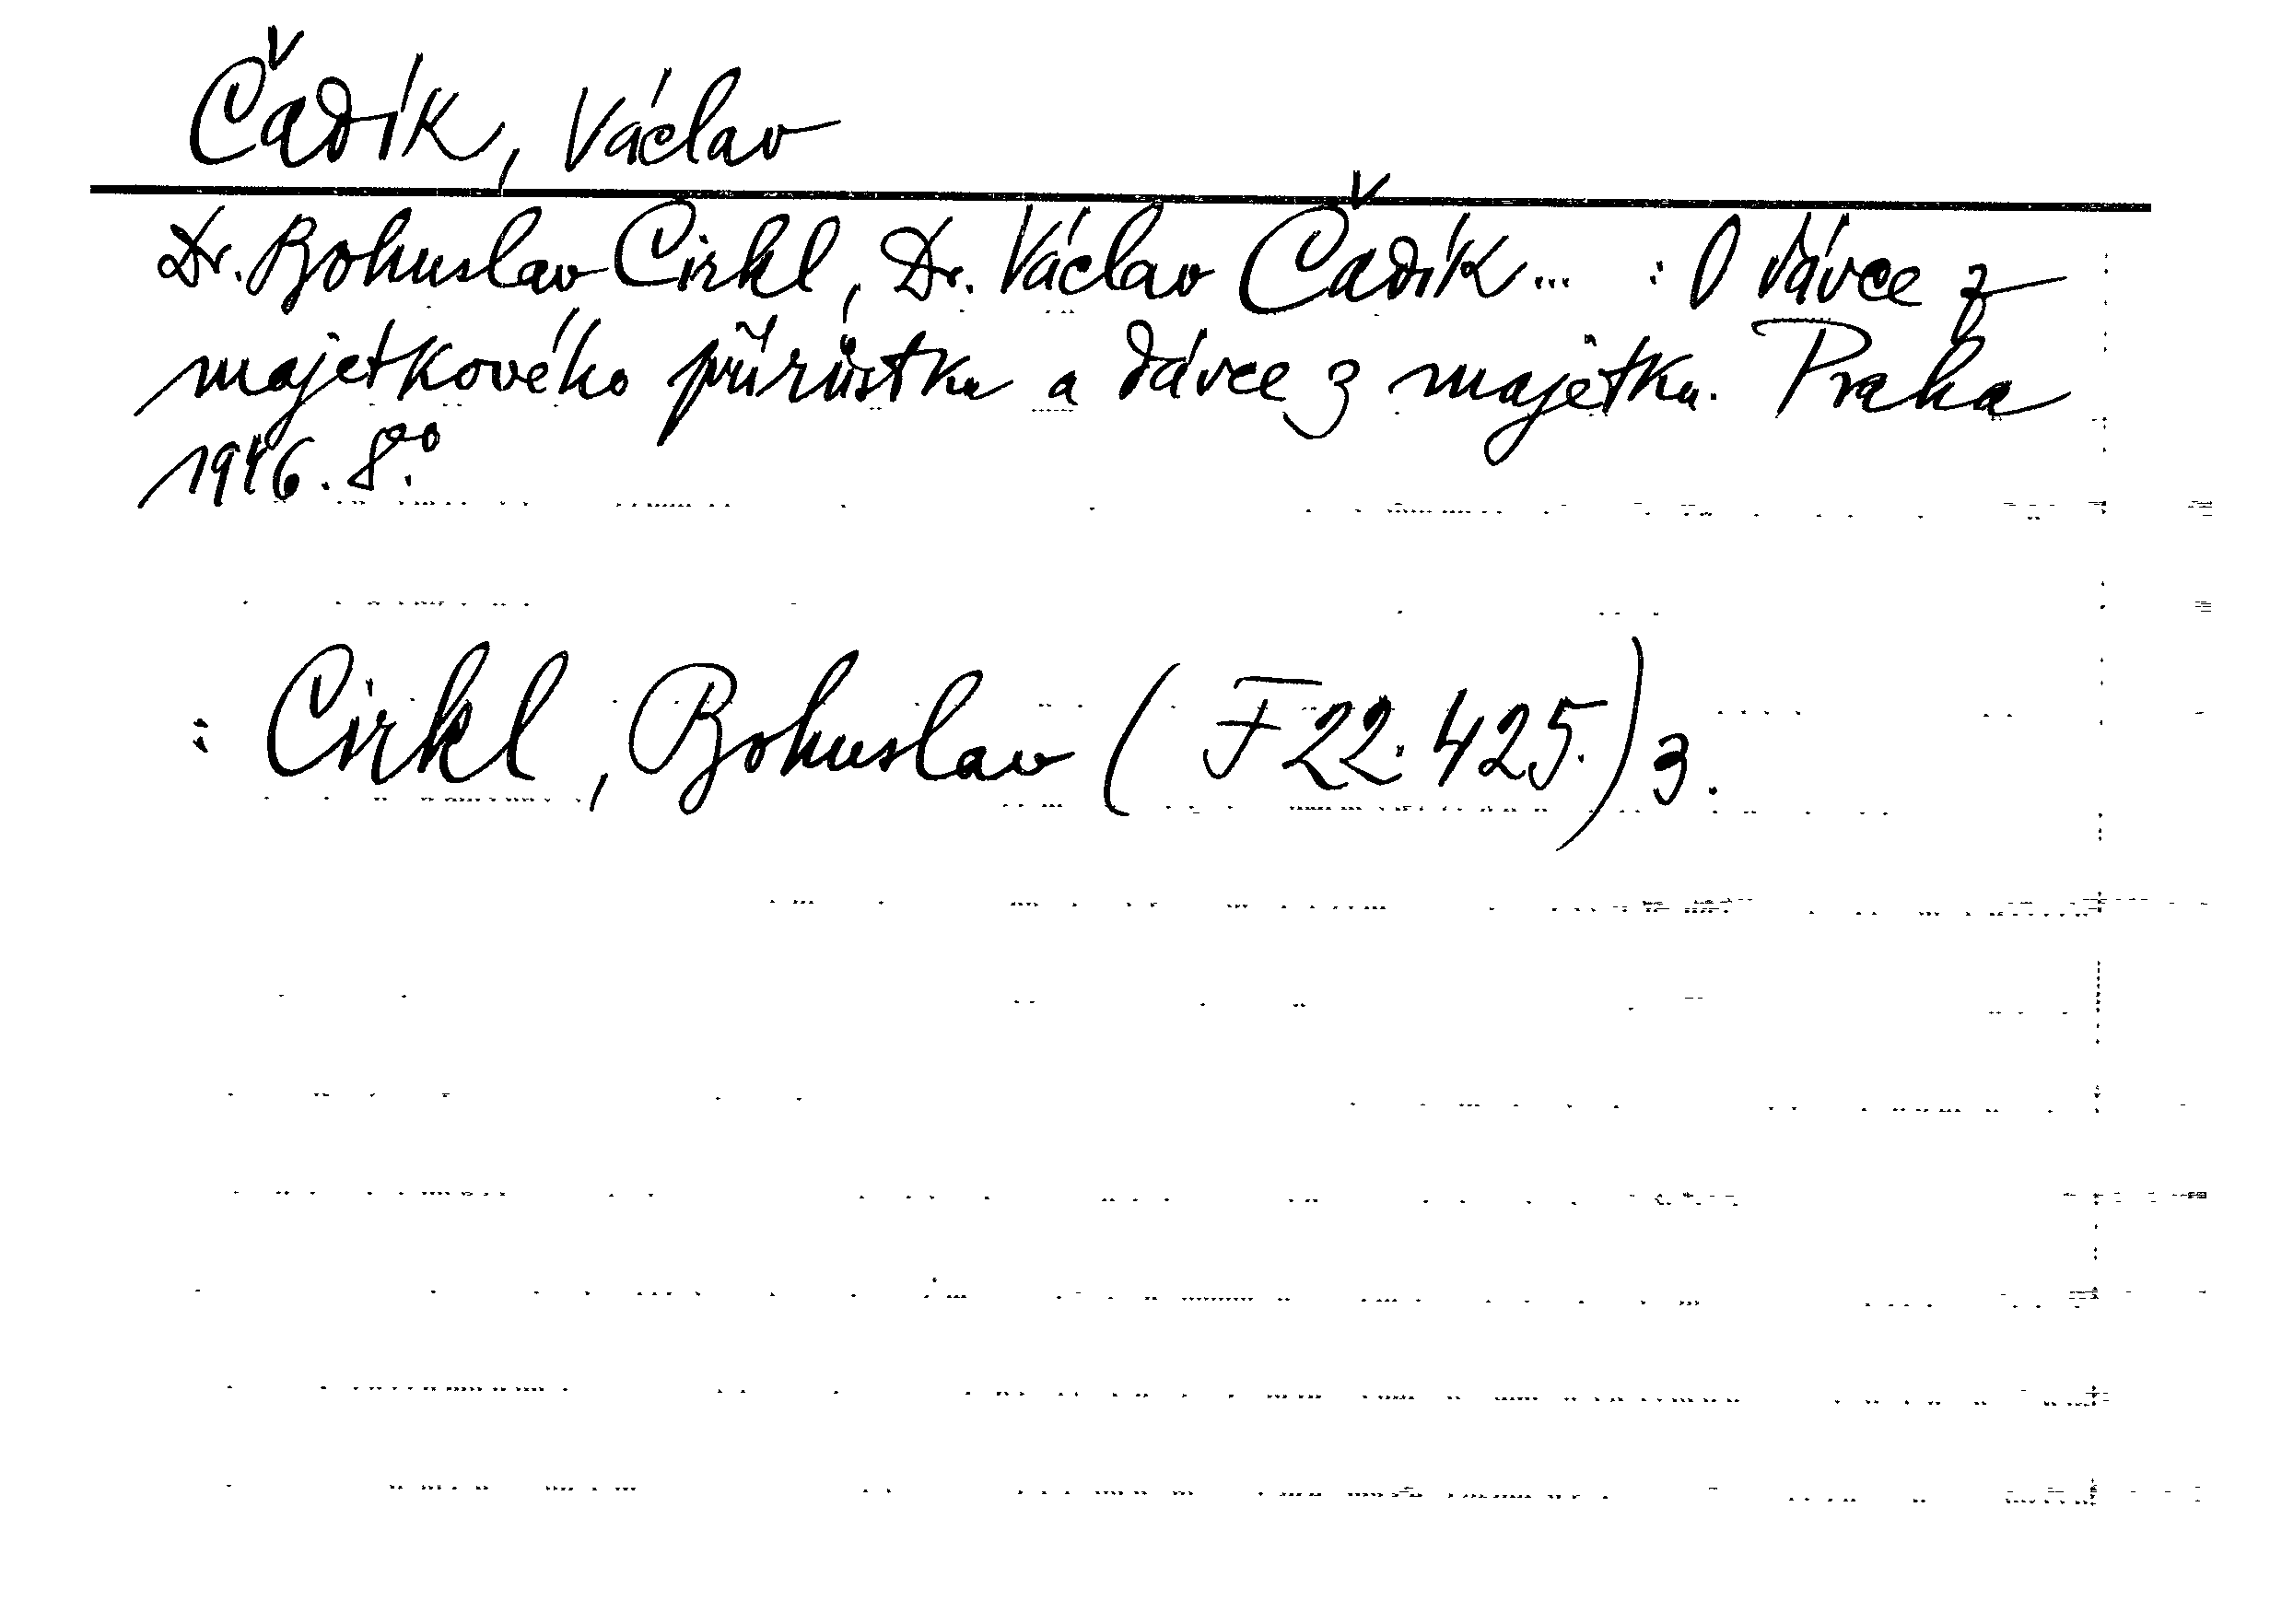 Čadík, Václav
Dr. Bohuslav Cirkl, Dr. Václav Čadík... : O dávce z
majetkového přírůstku a dávce z majetku. Praha
1946. 8°.
: Cirkl, Bohuslav (F 22.425.) 3.